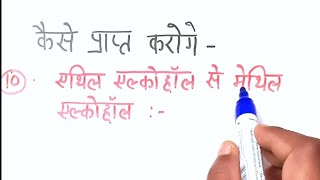 कैसे प्राप्त करोगे -
10. एथिल एल्कोहॉल से मेथिल
एल्कोहॉल :-